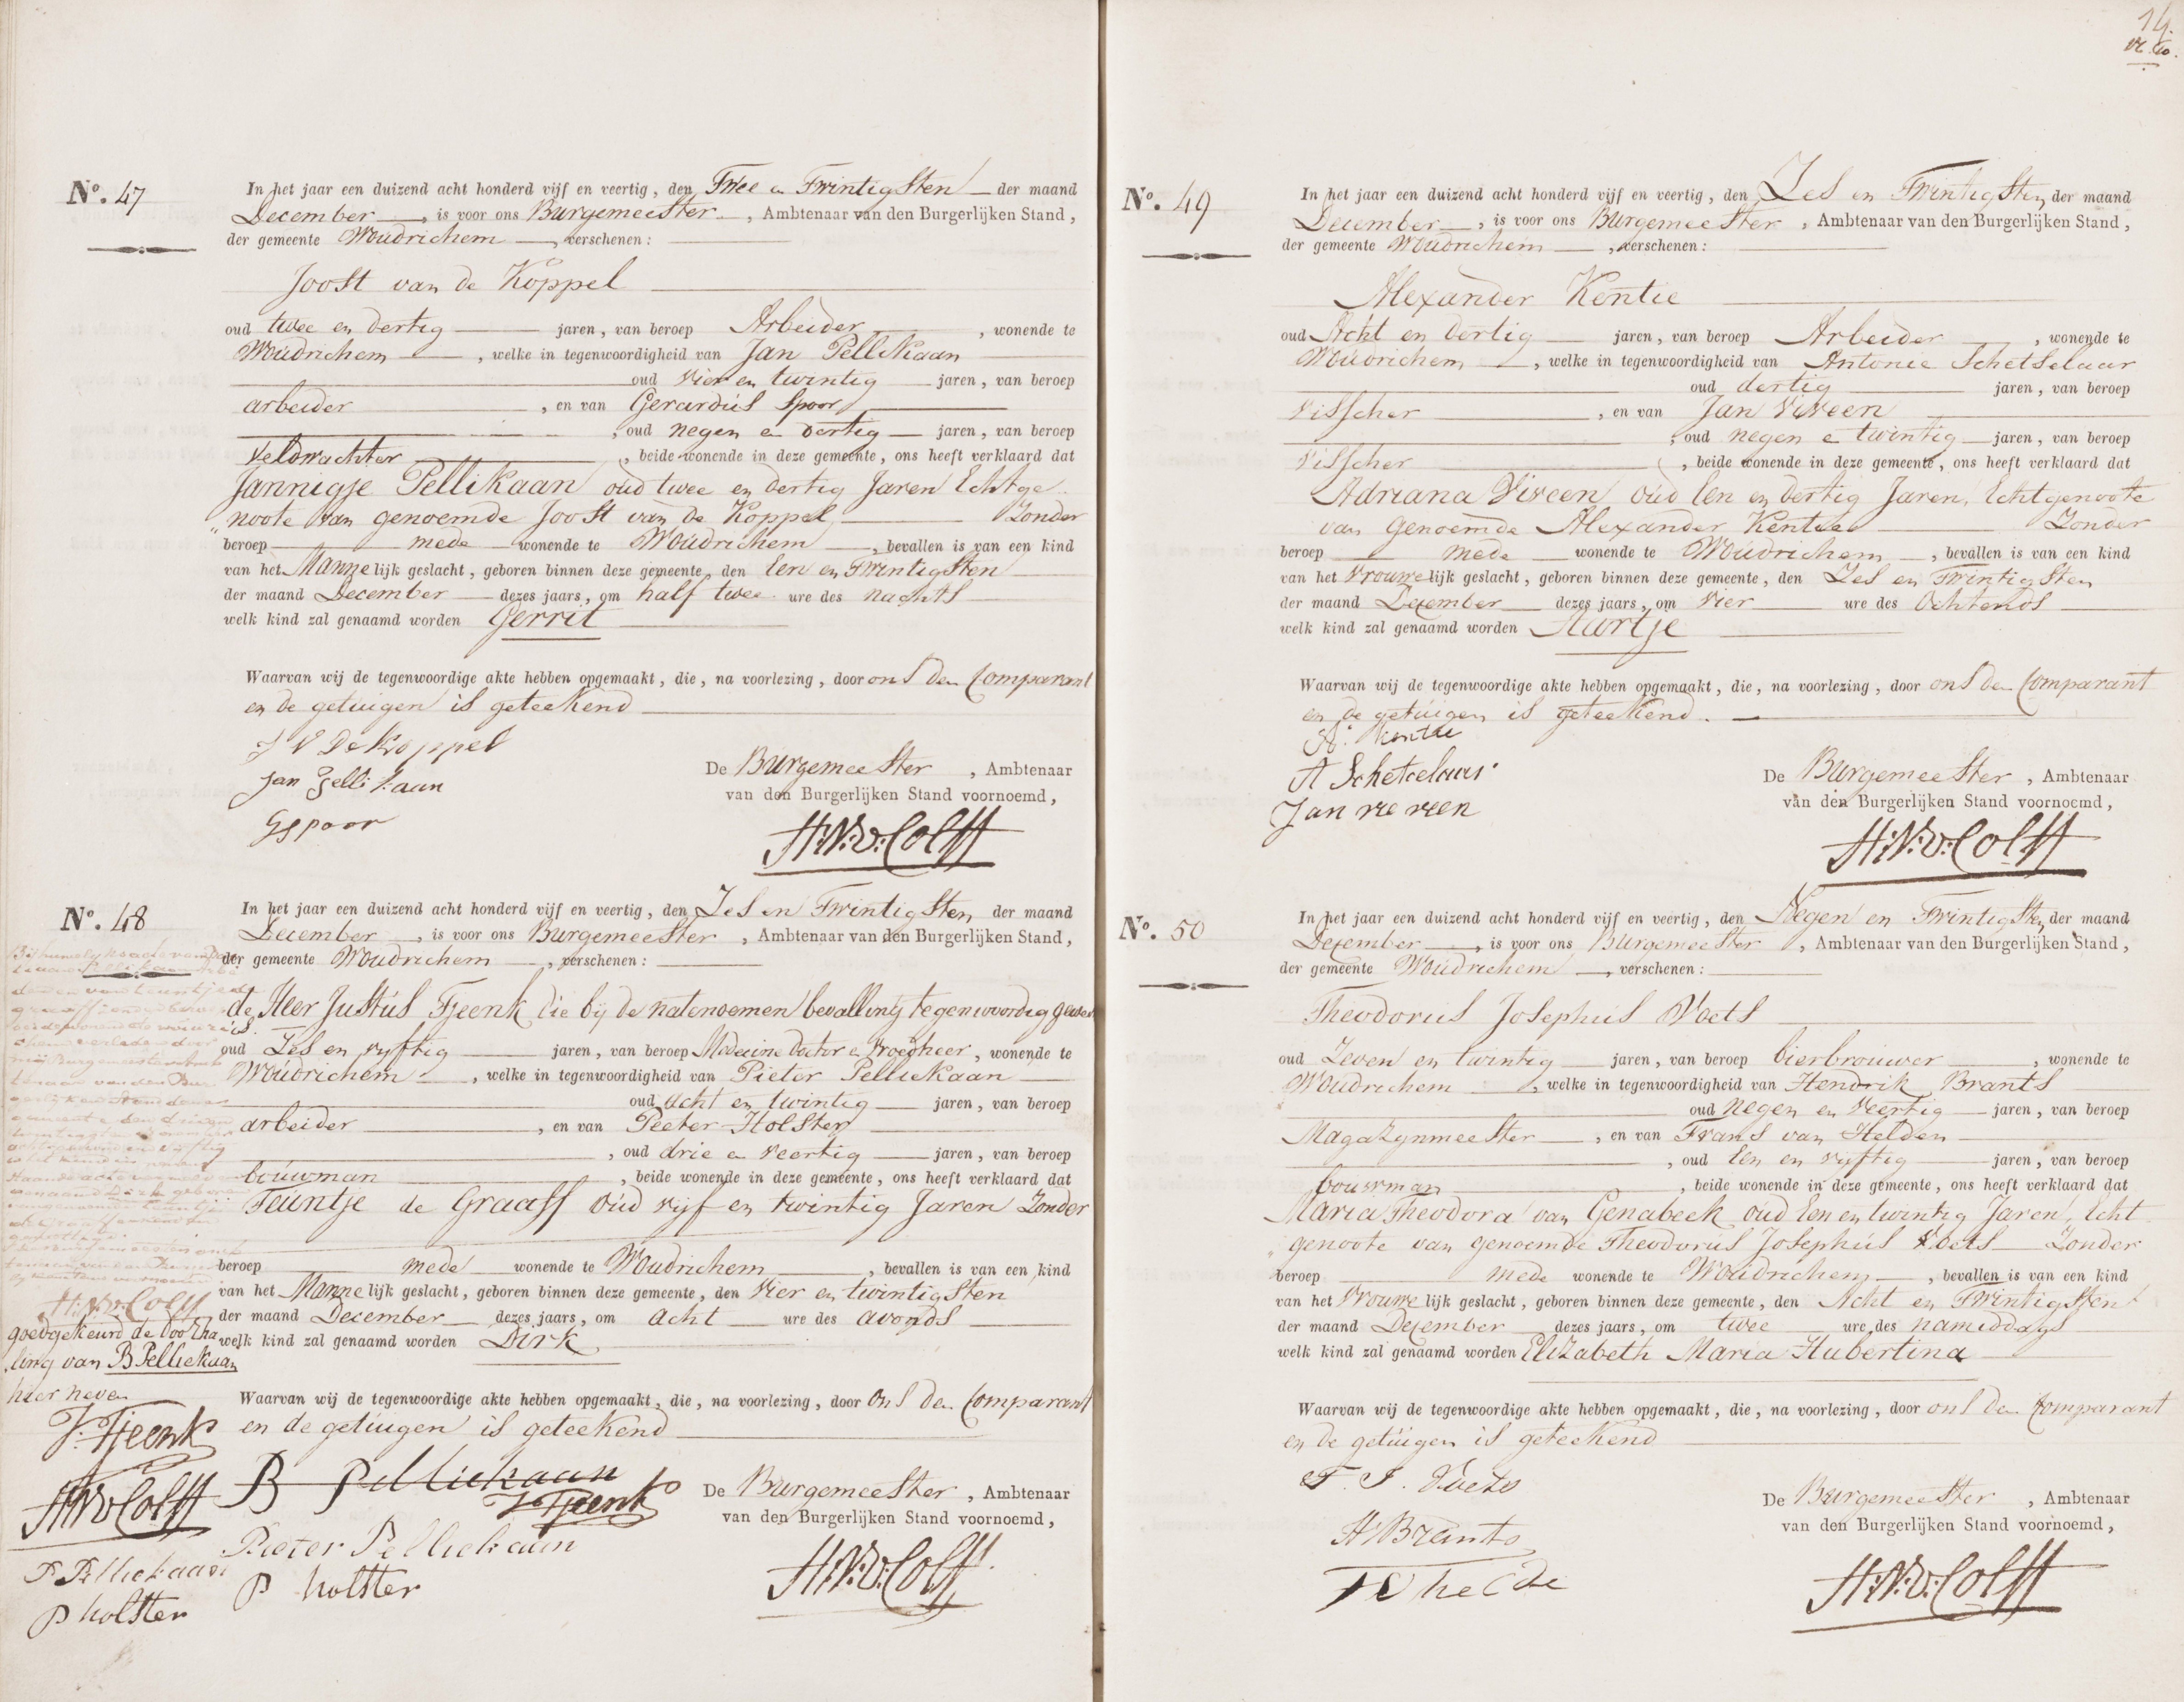 14.
No. 47
In het jaar een duizend acht honderd vijf en veertig, den Twee en Twintigsten der maand
December, is voor ons Burgemeester, Ambtenaar van den Burgerlijken Stand,
der gemeente Woudrichem, verschenen:
Joost van de Koppel
oud twee en dertig jaren, van beroep Arbeider, wonende te
Woudrichem, welke in tegenwoordigheid van Jan Pellikaan
oud Vier en twintig jaren, van beroep
arbeider, en van Gerardus Spoor
, oud negen en dertig jaren, van beroep
Veldwachter, beide wonende in deze gemeente, ons heeft verklaard dat
Jannigje Pellikaan oud twee en dertig Jaren Echtge
„noote van genoemde Joost van de Koppel Zonder
beroep mede wonende te Woudrichem, bevallen is van een kind
van het Mannelijk geslacht, geboren binnen deze gemeente, den Een en Twintigsten
der maand December dezes jaars, om half twee ure des nachts
welk kind zal genaamd worden Gerrit
Waarvan wij de tegenwoordige akte hebben opgemaakt, die, na voorlezing, door ons den Comparant
en de getuigen is geteekend
J V De Koppel
Jan Pellikaan
G Spoor
De Burgemeester, Ambtenaar
van den Burgerlijken Stand voornoemd,
H:N:v:Colff
No. 48
In het jaar een duizend acht honderd vijf en veertig, den Zes en Twintigsten der maand
December, is voor ons Burgemeester, Ambtenaar van den Burgerlijken Stand,
der gemeente Woudrichem, verschenen:
de Heer Justus Tjeenk die bij de natenoemen bevalling tegenwoordig geweest
is.
oud Zes en vyftig jaren, van beroep Medecine Doctor en Vroedheer, wonende te
Woudrichem, welke in tegenwoordigheid van Pieter Pelliekaan
oud Acht en twintig jaren, van beroep
arbeider, en van Peeter Holster
, oud drie en Veertig jaren, van beroep
bouwman, beide wonende in deze gemeente, ons heeft verklaard dat
Teuntje de Graaff oud vyf en twintig Jaren Zonder
beroep mede wonende te Woudrichem, bevallen is van een kind
van het Mannelijk geslacht, geboren binnen deze gemeente, den Vier en twintigsten
der maand December dezes jaars, om Acht ure des avonds
welk kind zal genaamd worden Dirk
Waarvan wij de tegenwoordige akte hebben opgemaakt, die, na voorlezing, door ons den Comparant
en de getuigen is geteekend
B Pelliekaan
J Tjeenk
Pieter Pelliekaan
P holster
De Burgemeester, Ambtenaar
van den Burgerlijken Stand voornoemd,
H:N:v:Colff
H:N:v:Colff
goedgekeurd de doorha
ling van B Pelliekaan
hier neven
J. Tjeenk
HNvColff
P Pelliekaan
P holster
No. 49
In het jaar een duizend acht honderd vijf en veertig, den Zes en Twintigsten der maand
December, is voor ons Burgemeester, Ambtenaar van den Burgerlijken Stand,
der gemeente Woudrichem, verschenen:
Alexander Kentie
oud Acht en dertig jaren, van beroep Arbeider, wonende te
Woudrichem, welke in tegenwoordigheid van Antonie Schetselaar
oud dertig jaren, van beroep
Visscher, en van Jan Viveen
, oud negen e twintig jaren, van beroep
Visscher, beide wonende in deze gemeente, ons heeft verklaard dat
Adriana Viveen oud Een en dertig Jaren, Echtgenoote
van Genoemde Alexander Kentie Zonder
beroep mede wonende te Woudrichem, bevallen is van een kind
van het Vrouwelijk geslacht, geboren binnen deze gemeente, den Zes en Twintigsten
der maand December dezes jaars, om Vier ure des Ochtends
welk kind zal genaamd worden Aartje
Waarvan wij de tegenwoordige akte hebben opgemaakt, die, na voorlezing, door ons den Comparant
en de getuigen is geteekend.
A: Kentie
A Schetselaar
Jan vieveen
De Burgemeester, Ambtenaar
van den Burgerlijken Stand voornoemd,
H:N:v:Colff
No. 50
In het jaar een duizend acht honderd vijf en veertig, den Negen en Twintigsten der maand
December, is voor ons Burgemeester, Ambtenaar van den Burgerlijken Stand,
der gemeente Woudrichem, verschenen:
Theodorus Josephus Voets
oud Zeven en twintig jaren, van beroep bierbrouwer, wonende te
Woudrichem, welke in tegenwoordigheid van Hendrik Brants
oud Negen en Veertig jaren, van beroep
Magazynmeester, en van Frans van Helden
, oud Een en vyftig jaren, van beroep
bouwman, beide wonende in deze gemeente, ons heeft verklaard dat
Maria Theodora van Genabeek oud Een en twintig Jaren, Echt
„genoote van genoemde Theodorus Josephus Voets Zonder
beroep mede wonende te Woudrichem, bevallen is van een kind
van het Vrouwelijk geslacht, geboren binnen deze gemeente, den Acht en Twintigsten
der maand December dezes jaars, om twee ure des namiddags
welk kind zal genaamd worden Elizabeth Maria Hubertina
Waarvan wij de tegenwoordige akte hebben opgemaakt, die, na voorlezing, door ons den Comparant
en de getuigen is geteekend
T. J. Voets
H Brants
De Burgemeester, Ambtenaar
van den Burgerlijken Stand voornoemd,
H:N:v:Colff